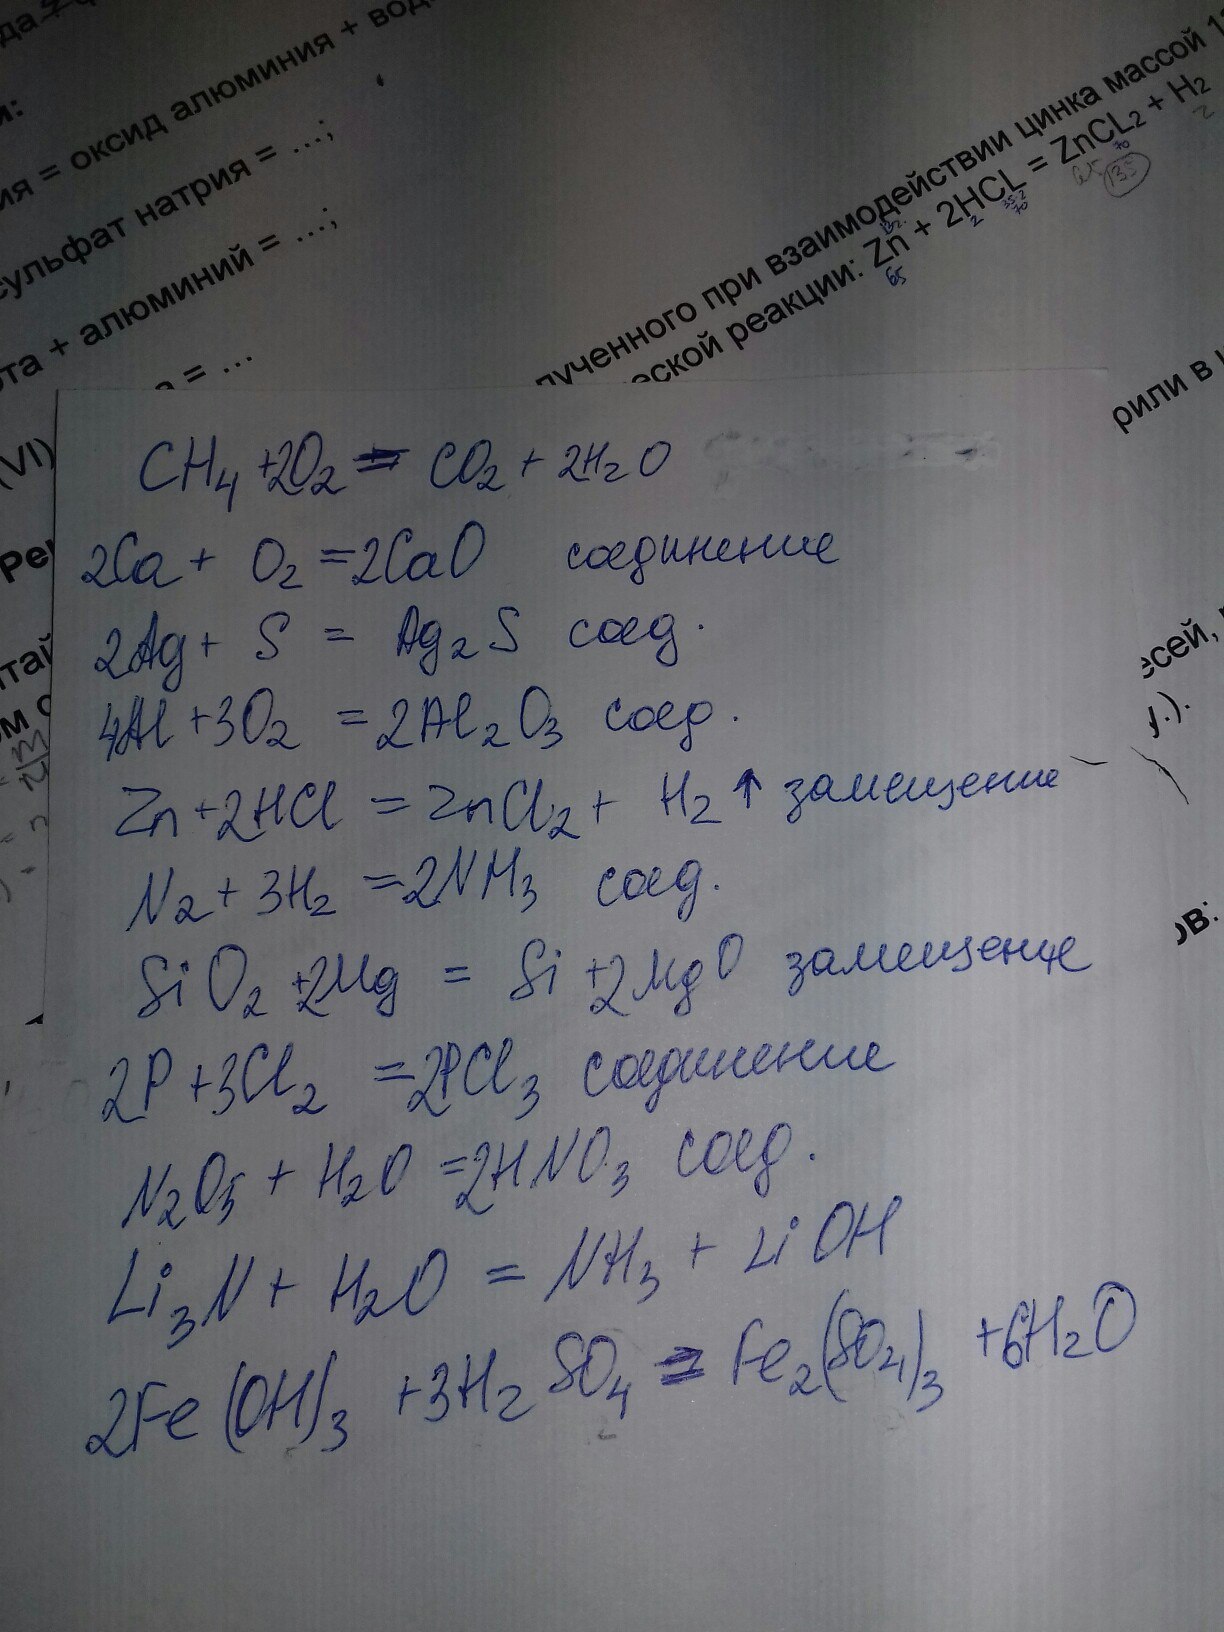 оксид алюминия + вод
сульфат натрия = ...;
+ алюминий = ...;
= ...
(VI)
взаимодействии цинка массой
при
реакции: Zn + 2HCL = ZnCL2 + H2
65
135
65
CH4 + 2O2 = CO2 + 2H2O
2Ca + O2 = 2CaO соединение
2Ag + S = Ag2S соед.
4Al + 3O2 = 2Al2O3 соед.
Zn + 2HCl = ZnCl2 + H2↑ замещение
N2 + 3H2 = 2NH3 соед.
SiO2 + 2Mg = Si + 2MgO замещение
2P + 3Cl2 = 2PCl3 соединение
N2O5 + H2O = 2HNO3 соед.
Li3N + H2O = NH3 + LiOH
2Fe(OH)3 + 3H2SO4 = Fe2(SO4)3 + 6H2O